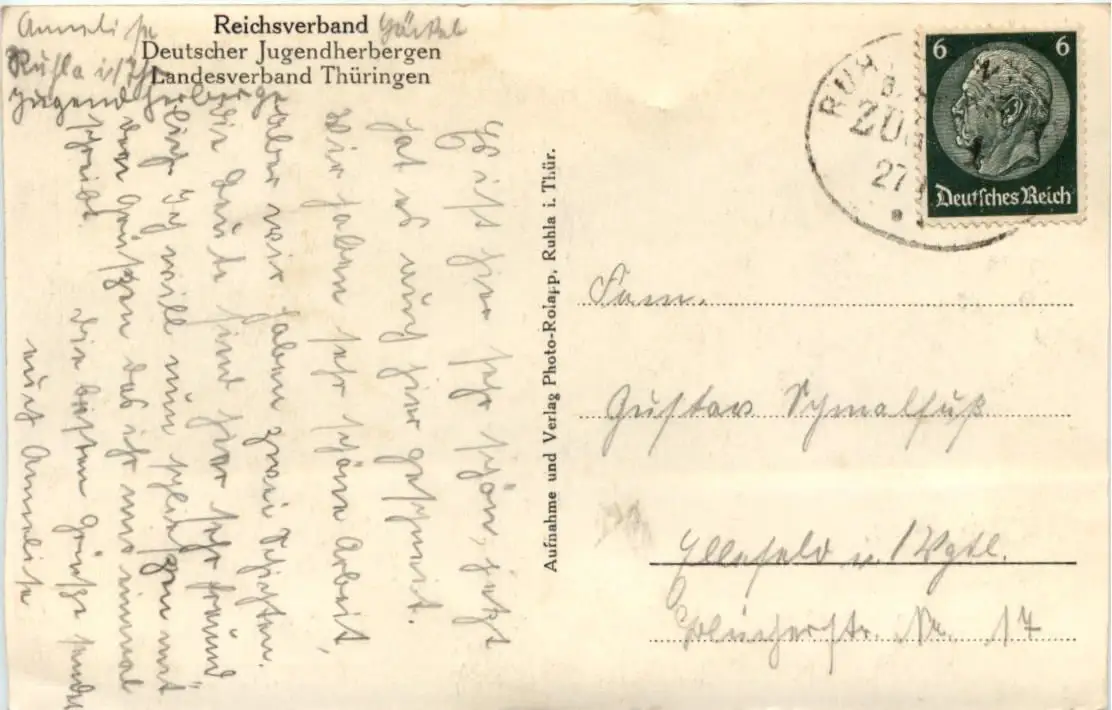 Anneliese Gürtel
Ruhla i/Th.
Jugendherberge
Reichsverband
Deutscher Jugendherbergen
Landesverband Thüringen
Es ist hier sehr schön, jetzt
hat es auch hier geschneit.
Wir haben sehr schöne Arbeit,
aber wir haben zwei Schichten.
die Leute sind hier sehr freund
lich. Ich will nun schließen mit
den Grüßen das ihr uns einmal
schreibt. die besten Grüße sendet
euch Annelise
Aufnahme und Verlag Photo-Rolapp, Ruhla i. Thür.
RUH
ZU
27
6 6
Deutsches Reich
Fam.
Gustav Schmalfuß
Ellefeld i. /Vgtl.
Blücherstr. Nr. 17